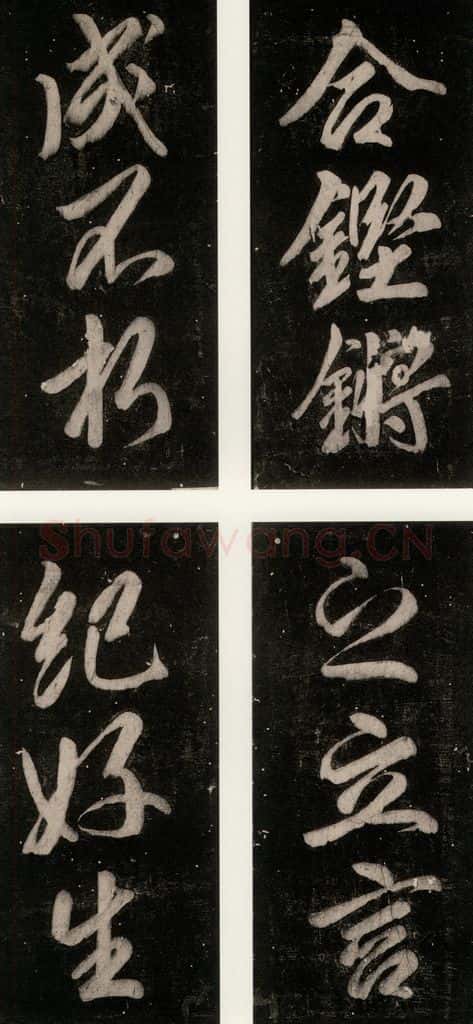 合鏗鏘
成不朽
Shufawang.CN
之立言
紀好生